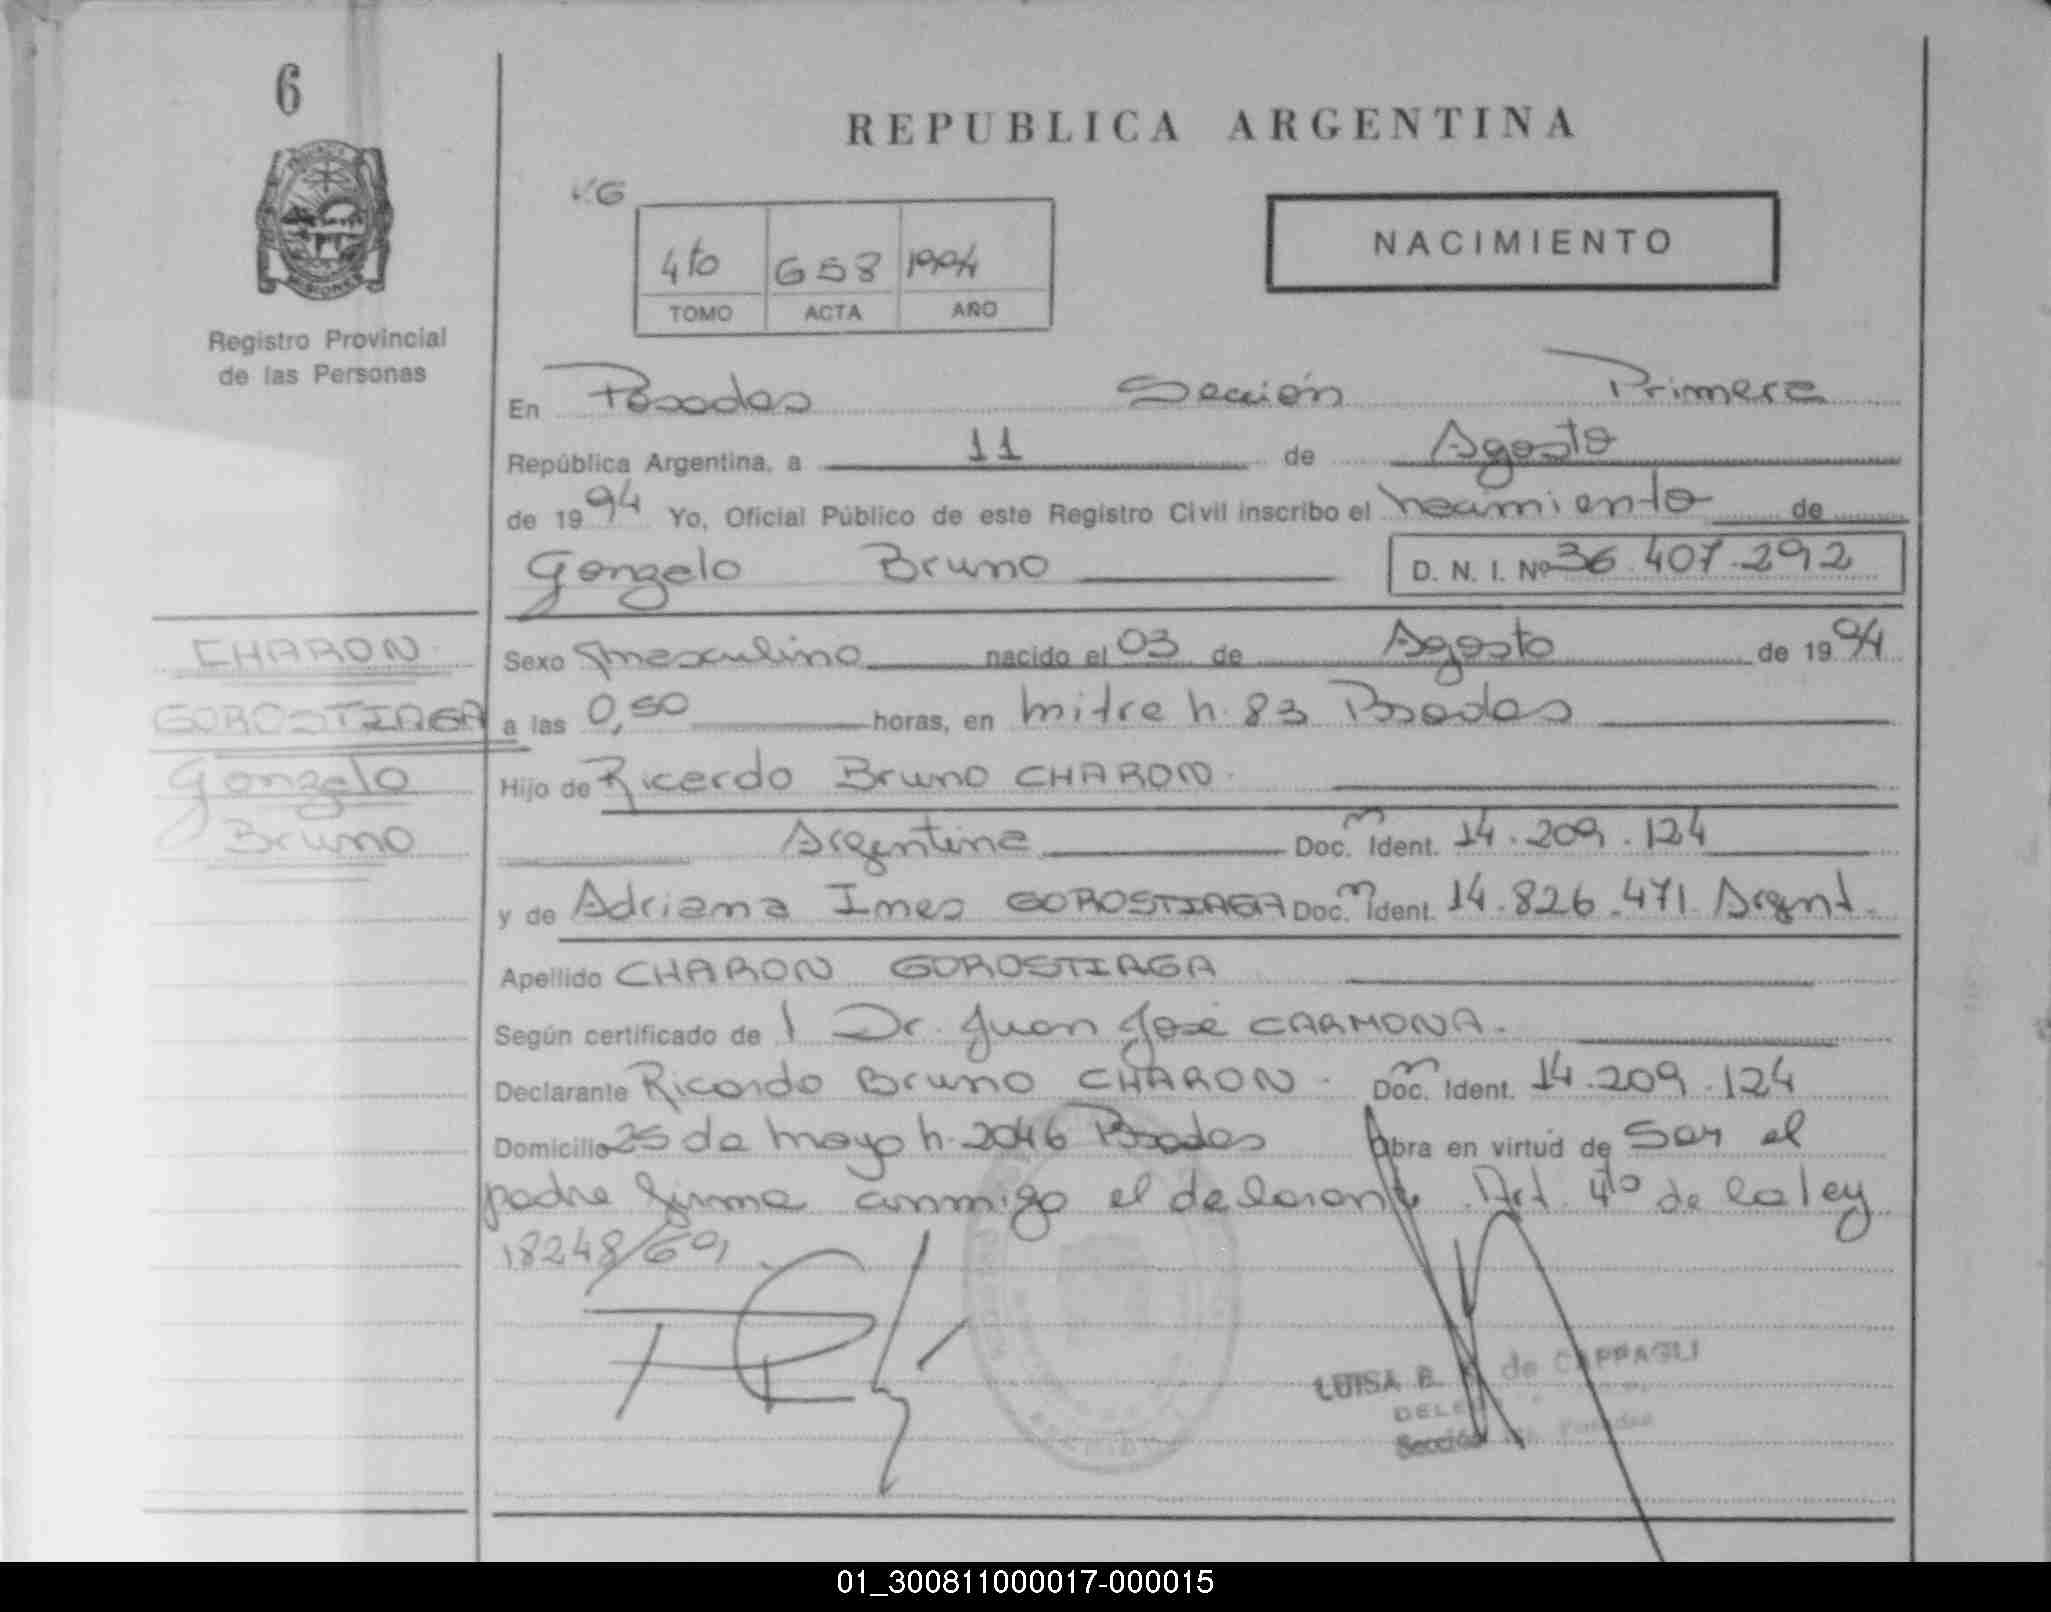 6
REPUBLICA ARGENTINA
VG
NACIMIENTO
4to 658 1994
TOMO ACTA AÑO
Registro Provincial
de las Personas
En Posadas Sección Primera
República Argentina, a 11 de Agosto
de 1994 Yo, Oficial Público de este Registro Civil inscribo el nacimiento de
Gonzalo Bruno D. N. I. Nº 36.407.292
CHARON
Sexo masculino nacido el 03 de Agosto de 1994
GOROSTIAGA
a las 0,50 horas, en Mitre n. 83 Posadas
Gonzalo
Hijo de Ricardo Bruno CHARON.
Bruno
Argentina Doc. Ident. 14.209.124
y de Adriana Ines GOROSTIAGA Doc. Ident. 14.826.471 Argent.
Apellido CHARON GOROSTIAGA
Según certificado de l Dr. Juan José CARMONA.
Declarante Ricardo Bruno CHARON. Doc. Ident. 14.209.124
Domicilio 25 de Mayo n. 2046 Posadas Obra en virtud de Ser el
padre firma conmigo el declarante. Art. 4to de la ley
18248/69,
LUISA B. de CAPPAGLI
Sección Posadas
01_300811000017-000015